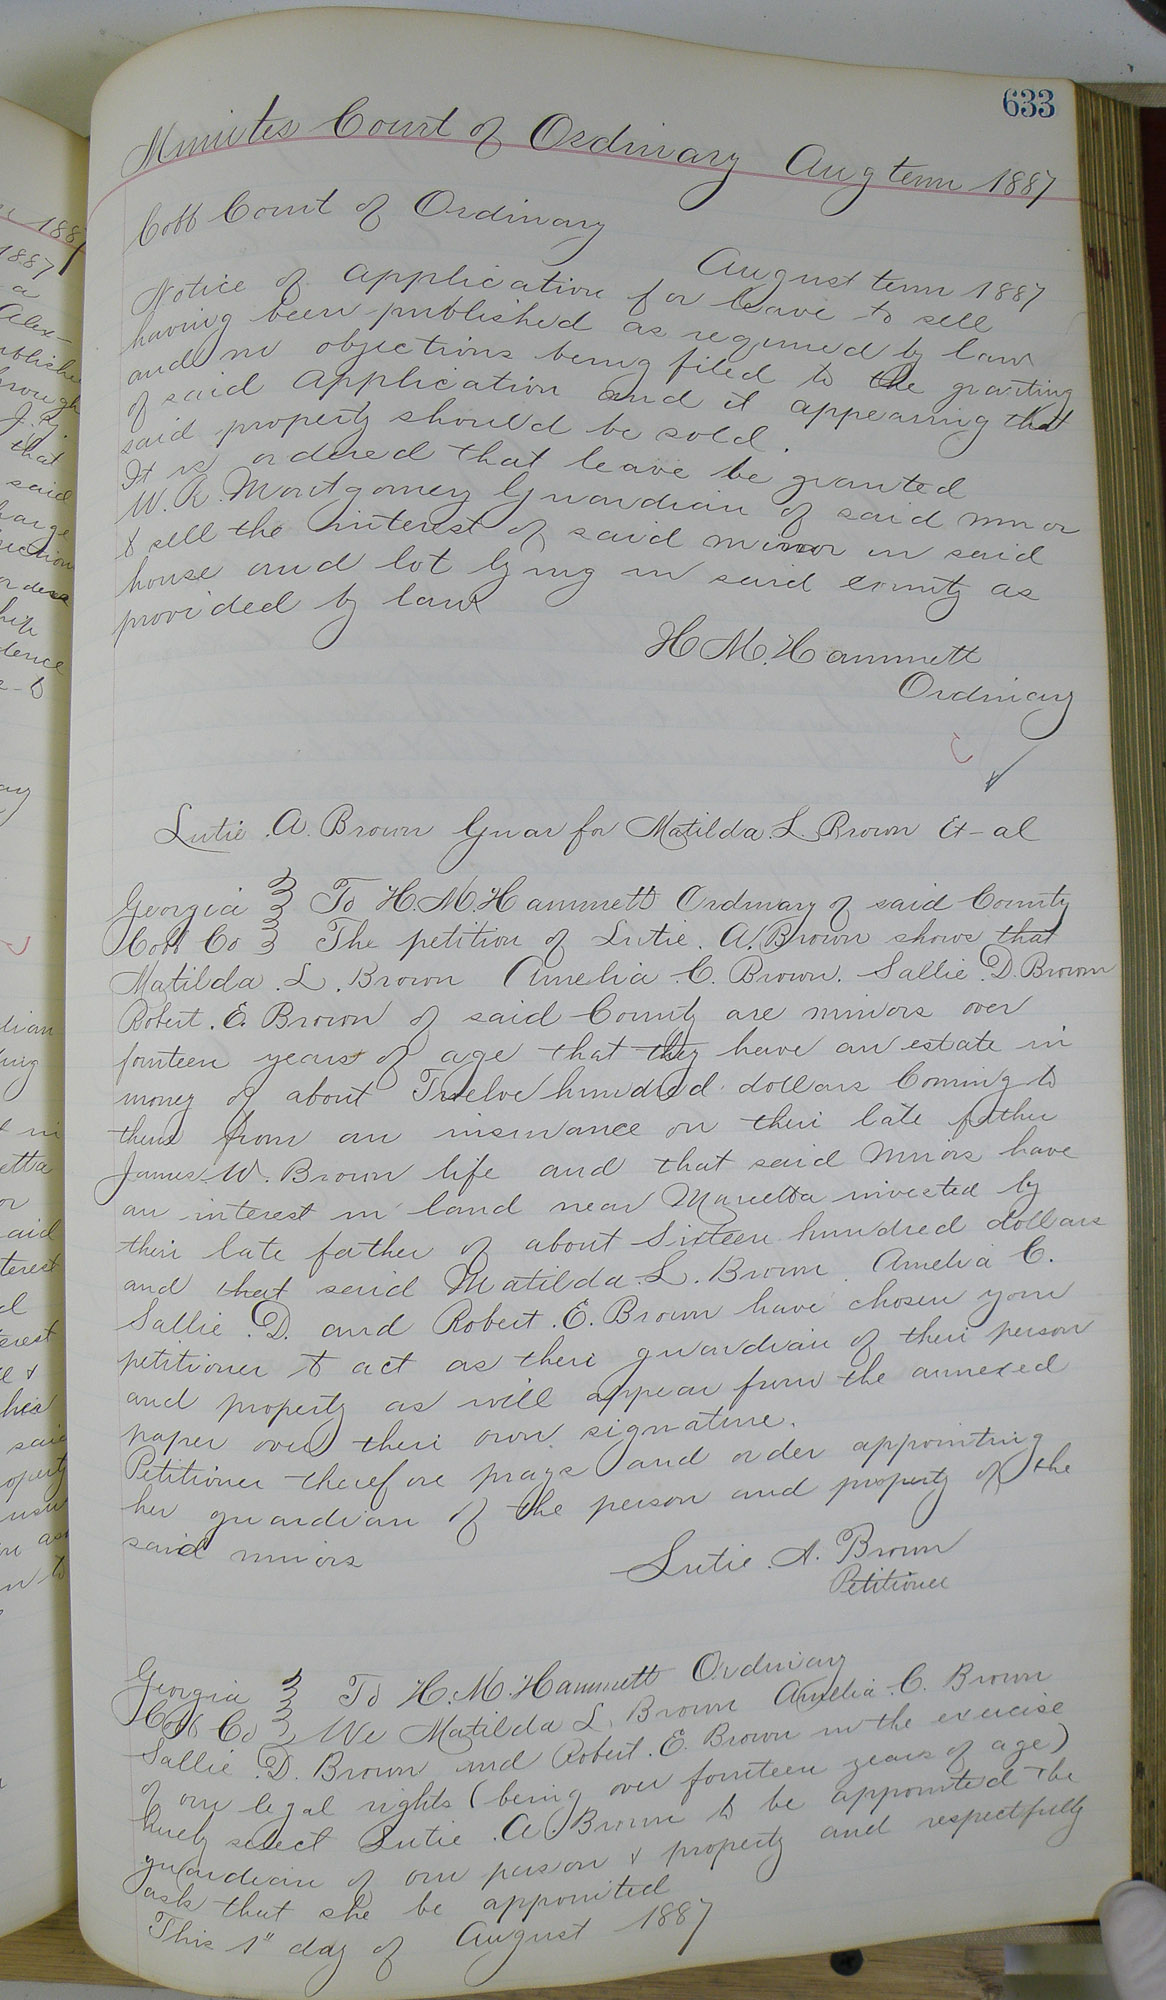 633
Minutes Court of Ordinary Aug term 1887
Cobb Court of Ordinary
August term 1887
Notice of application for leave to sell
having been published as required by law
and no objections being filed to the granting
of said application and it appearing that
said property should be sold.
It is ordered that leave be granted
W. R. Montgomery Guardian of said minor
to sell the interest of said minor in said
house and lot lying in said county as
provided by law
H M. Hammett
Ordinary
Lutie A. Brown Guar for Matilda L. Brown Et-al
Georgia } To H. M. Hammett Ordinary of said County
Cobb Co } The petition of Lutie A. Brown shows that
Matilda L. Brown Amelia C. Brown. Sallie D. Brown
Robert. E. Brown of said County are minors over
fourteen years of age that they have an estate in
money of about Twelve hundred dollars Coming to
them from an insurance on their late father
James W. Brown life and that said Minors have
an interest in land near Marietta invested by
their late father of about Sixteen hundred dollars
and that said Matilda L. Brown. Amelia C.
Sallie D. and Robert. E. Brown have chosen your
petitioner to act as their guardian of their person
and property as will appear from the annexed
paper over their own signature.
Petitioner therefore prays and order appointing
her guardian of the person and property of the
said minors
Lutie A. Brown
Petitioner
Georgia } To H. M. Hammett Ordinary
Cobb Co } We Matilda L. Brown Amelia C. Brown
Sallie D. Brown and Robert. E. Brown in the exercise
of our legal rights (being over fourteen years of age)
hereby select Lutie A Brown to be appointed the
guardian of our person & property and respectfully
ask that she be appointed
This 1" day of August 1887